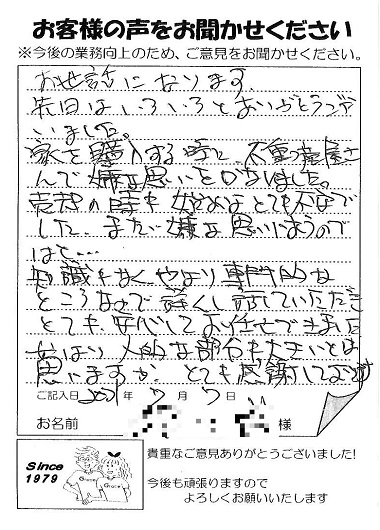 お客様の声をお聞かせください
※今後の業務向上のため、ご意見をお聞かせください。
お世話になります。
先日はいろいろとありがとうござ
いました。
家を購入する時に、不動産屋さ
んで嫌な思いをしました。
売却の時も始めはとても不安で
した。また嫌な思いをするので
はと…
知識もなくやはり専門的な
ところなので詳しく示していただき
とても、安心してお任せできました
やはり人的な部分も大きいとは
思いますが、とても感謝しております
ご記入日 年 7月 7日
お名前 様
Since
1979
貴重なご意見ありがとうございました!
今後も頑張りますので
よろしくお願いいたします